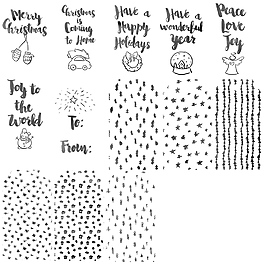 Merry
Christmas
Christmas
is
Coming
to Home
Have a
Happy
Holidays
Have a
wonderful
Year
Peace
Love
Joy
Joy to
the
World
To:
From: